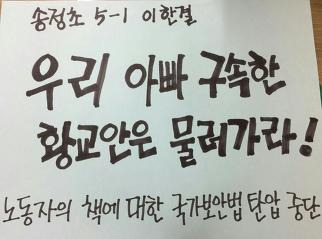 송정초 5-1 이한결
우리 아빠 구속한
황교안은 물러가라!
노동자의 책에 대한 국가보안법 탄압 중단